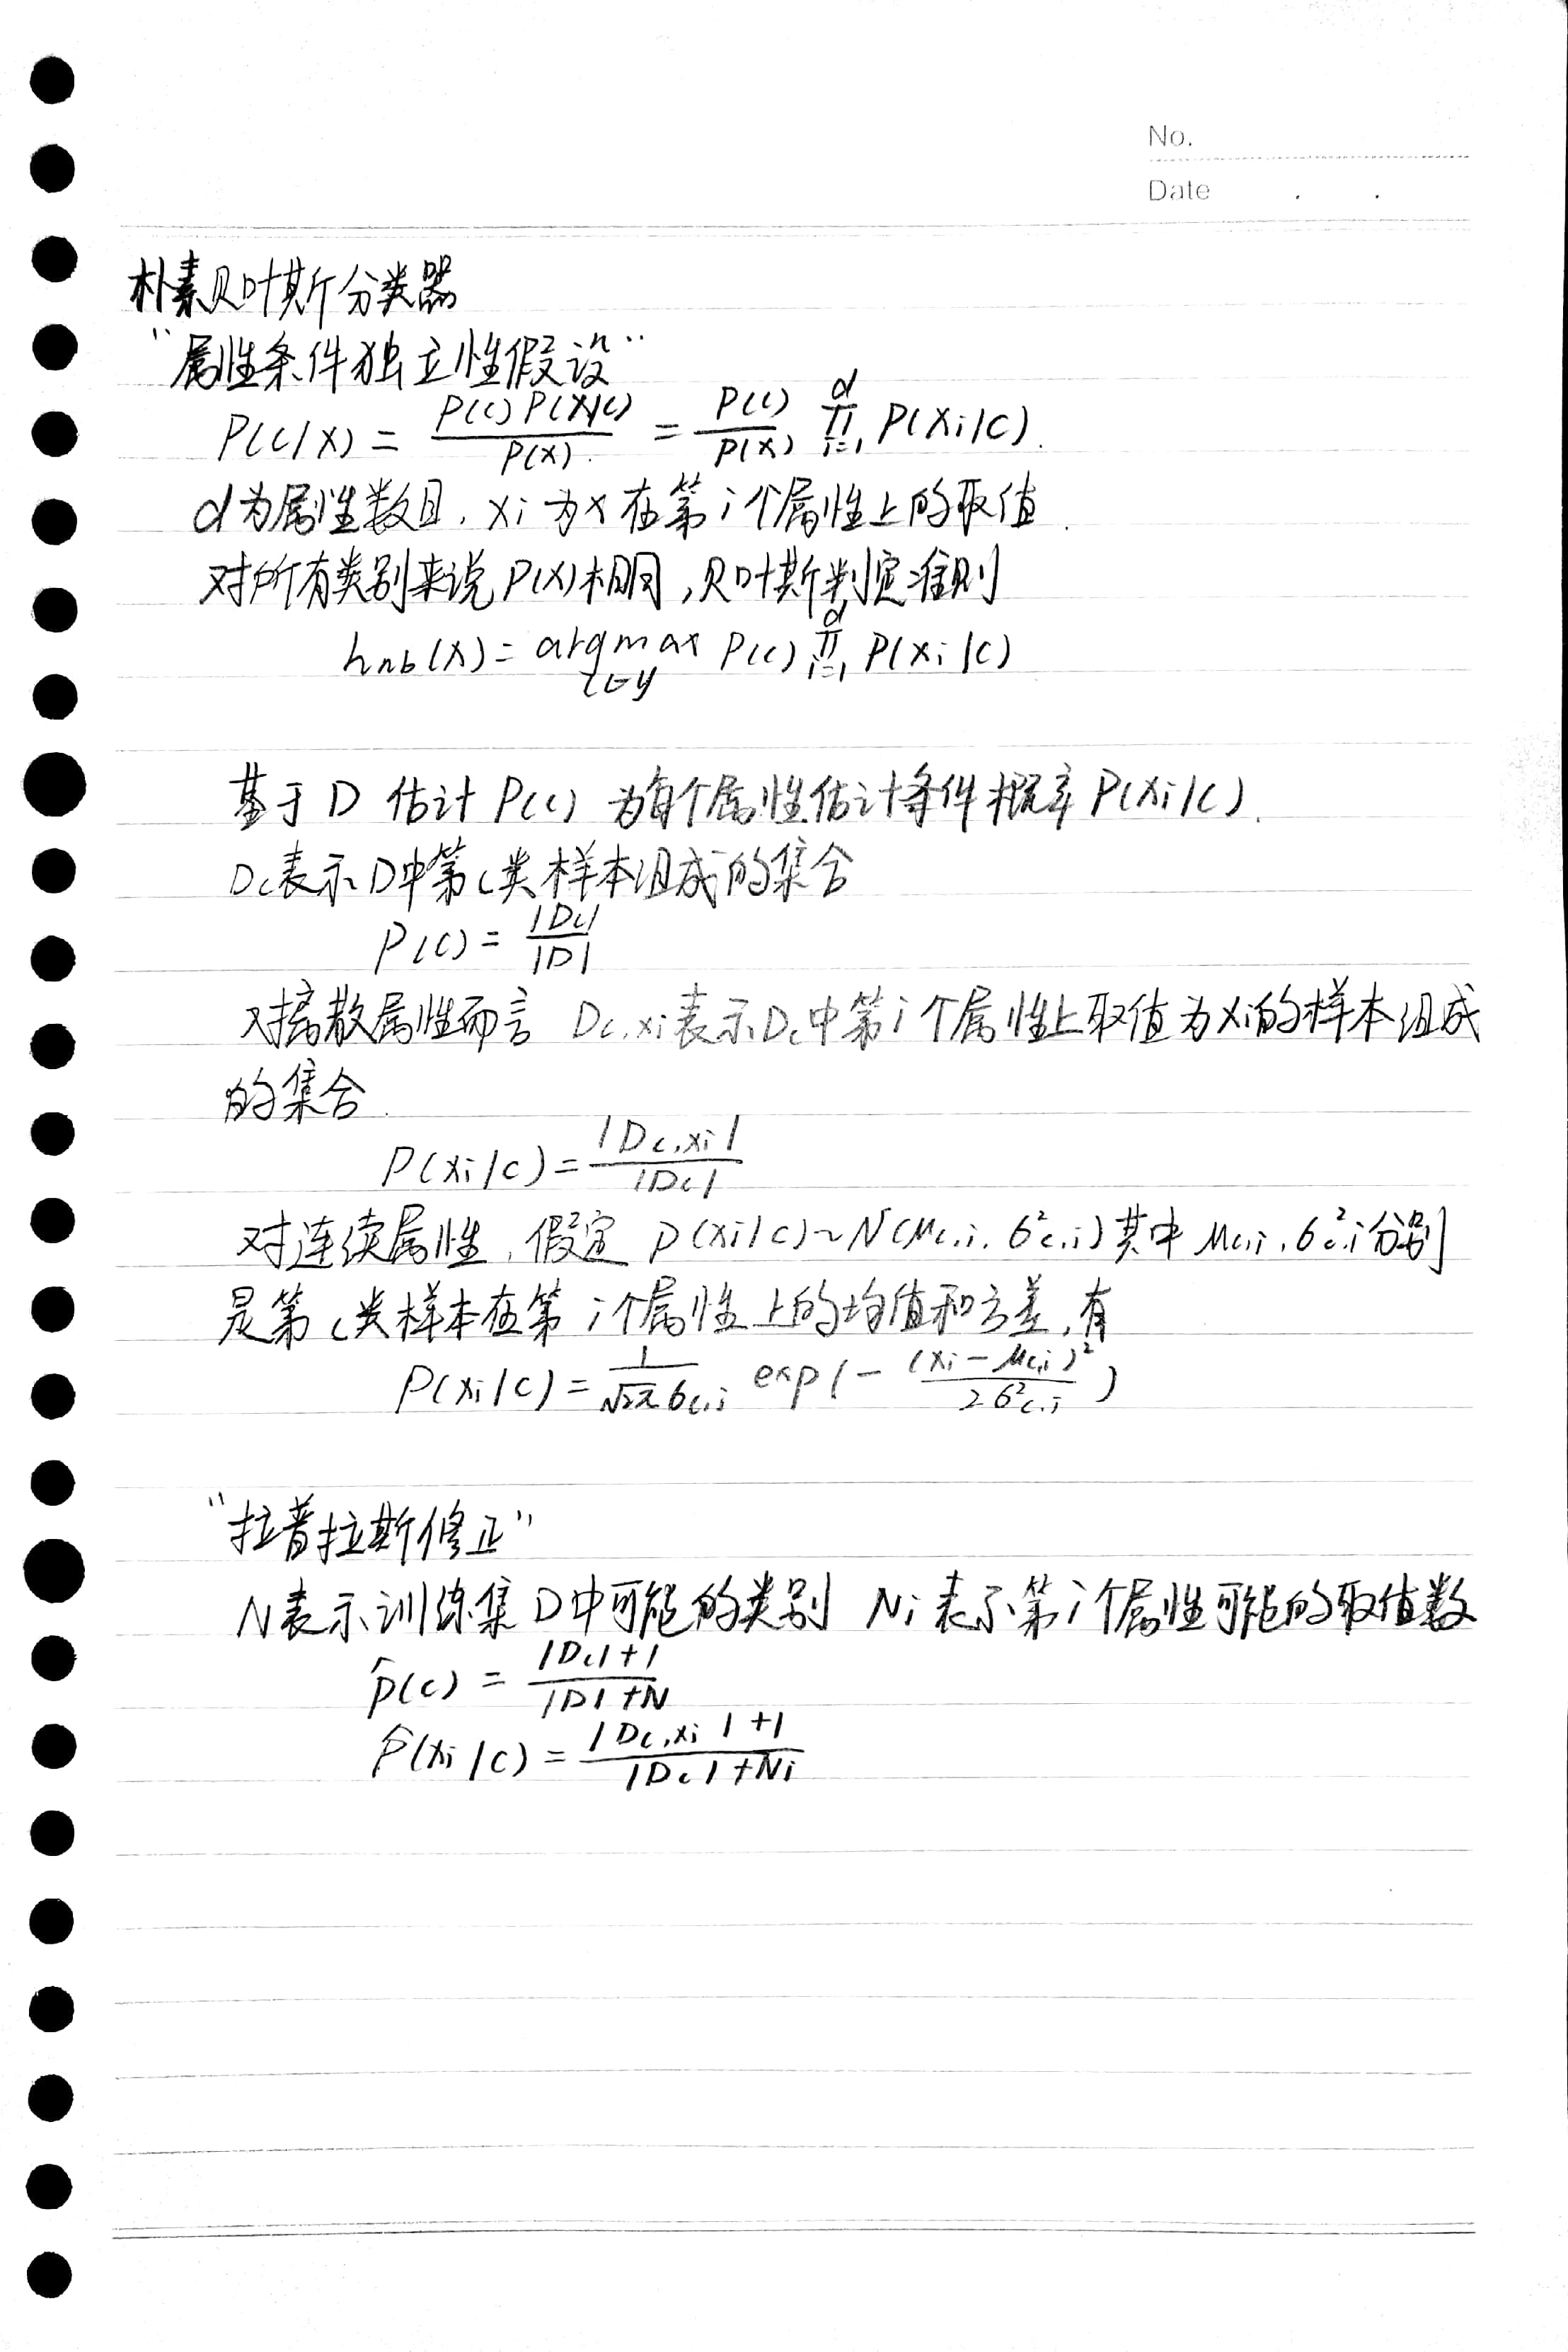 No.
Date . .
朴素贝叶斯分类器
“属性条件独立性假设”
P(c|x) = \frac{P(c)P(x|c)}{P(x)} = \frac{P(c)}{P(x)} \prod_{i=1}^{d} P(xi|c).
d为属性数目,xi为x在第i个属性上的取值.
对所有类别来说P(x)相同,贝叶斯判定准则
hnb(x) = argmax_{c∈y} P(c) \prod_{i=1}^{d} P(xi|c)
基于D 估计P(c) 为每个属性估计条件概率P(xi|c).
Dc表示D中第c类样本组成的集合
P(c) = \frac{|Dc|}{|D|}
对离散属性而言 Dc,xi表示Dc中第i个属性上取值为xi的样本组成
的集合.
P(xi|c) = \frac{|Dc,xi|}{|Dc|}
对连续属性,假定 p(xi|c)~N(μc,i, σ²c,i)其中μc,i,σ²c,i分别
是第c类样本在第i个属性上的均值和方差,有
P(xi|c) = \frac{1}{\sqrt{2π}σc,i} exp(-\frac{(xi-μc,i)²}{2σ²c,i})
“拉普拉斯修正”
N表示训练集D中可能的类别 Ni表示第i个属性可能的取值数
\hat{p}(c) = \frac{|Dc|+1}{|D|+N}
\hat{P}(xi|c) = \frac{|Dc,xi|+1}{|Dc|+Ni}